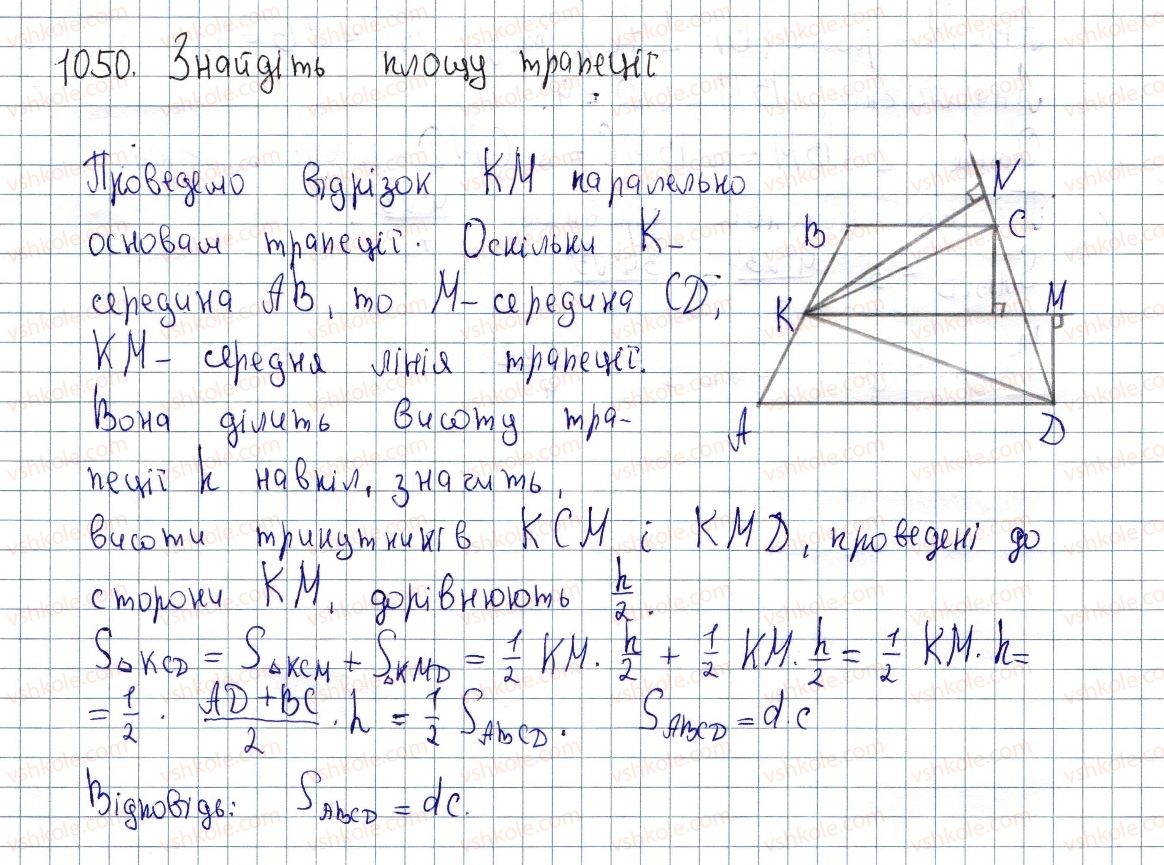 1050. Знайдіть площу трапеції
Проведемо відрізок KM паралельно
основам трапеції. Оскільки K-
середина AB, то M - середина CD;
KM - середня лінія трапеції.
Вона ділить висоту тра-
пеції h навпіл, значить,
висоти трикутників KCM і KMD, проведені до
сторони KM, дорівнюють h/2.
S△KCD = S△KCM + S△KMD = 1/2 KM · h/2 + 1/2 KM · h/2 = 1/2 KM · h =
= 1/2 · (AD + BC)/2 · h = 1/2 S ABCD. S ABCD = d · c
Відповідь: S ABCD = dc.
N
B
C
K
M
A
D
vshkole.com